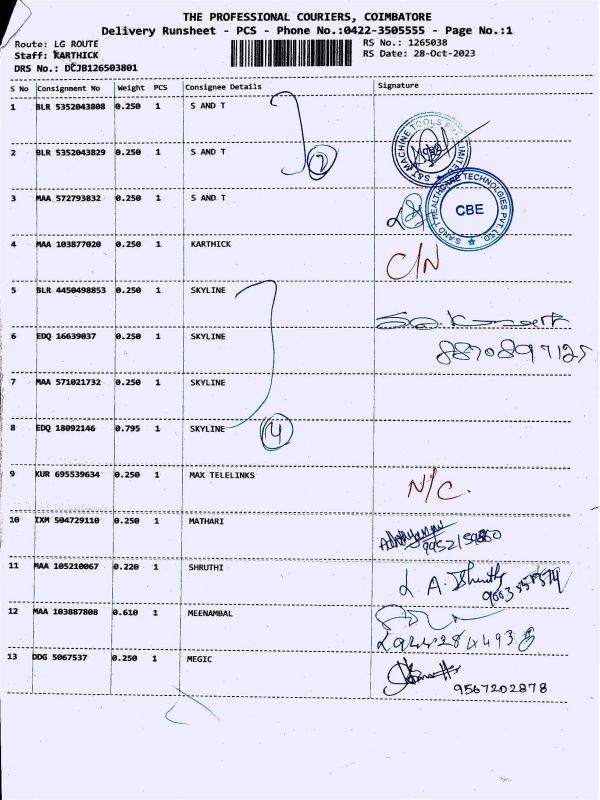 THE PROFESSIONAL COURIERS, COIMBATORE
Delivery Runsheet - PCS - Phone No.:0422-3505555 - Page No.:1
Route: LG ROUTE
Staff: KARTHICK
DRS No.: DCJB126503801
RS No.: 1265038
RS Date: 28-Oct-2023
S No Consignment No Weight PCS Consignee Details Signature
1 BLR 5352043808 0.250 1 S AND T
2 BLR 5352043829 0.250 1 S AND T
2
S&T MACHINE TOOLS PVT LIMITED
3 MAA 572793832 0.250 1 S AND T
S AND T HEALTHCARE TECHNOLOGIES PVT. LTD.
CBE
4 MAA 103877020 0.250 1 KARTHICK
C/N
5 BLR 4450498853 0.250 1 SKYLINE
6 EDQ 16639037 0.250 1 SKYLINE
8870897125
7 MAA 571021732 0.250 1 SKYLINE
8 EDQ 18092146 0.795 1 SKYLINE
4
9 KUR 695539634 0.250 1 MAX TELELINKS
N/C.
10 IXM 504729110 0.250 1 MATHARI
11 MAA 105210067 0.220 1 SHRUTHI
A.
12 MAA 103887808 0.610 1 MEENAMBAL
13 DDG 5067537 0.250 1 MEGIC
9567202878